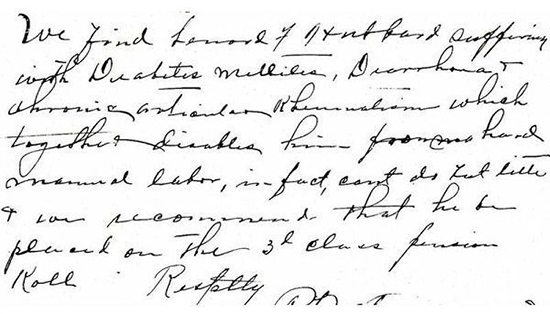 We find Lenord J Hubbard suffering
with Diabetes Mellites, Diarrhoea &
chronic articular Rheumatism which
together disables him from hard
manual labor, in fact, cant do but little
& we recommend that he be
placed on the 3d class pension
Roll Resptly